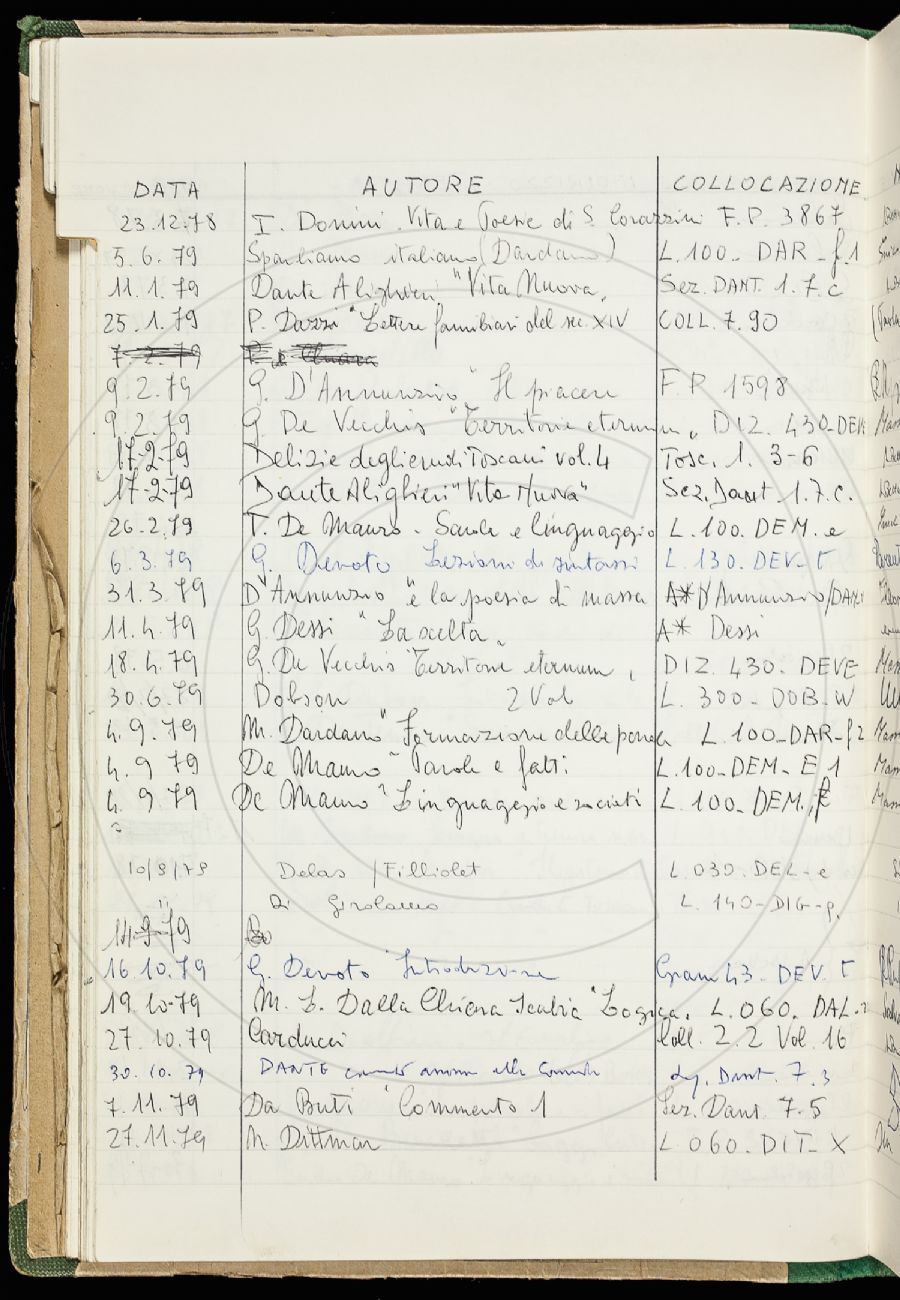 DATA AUTORE COLLOCAZIONE
23.12.78 I. Domini Vita e Poesie di S. Corazzini F.P. 3867
5.6.79 Parliamo italiano (Dardano) L.100- DAR - f.1
11.1.79 Dante Alighieri "Vita Nuova" Sez. DANT. 1.7.c
25.1.79 P. Dazzi "Lettere familiari del sec. XIV COLL. 7.90
7.2.79
9.2.79 G. D'Annunzio "Il piacere F.P. 1598
9.2.79 G. De Vecchis "Territorio eternum" DIZ. 430-DEVE
17-2-79 Delizie degli eruditi Toscani vol.4 Tosc. 1. 3-6
17-2-79 Dante Alighieri "Vita Nuova" Sez. Dant. 1.7.c.
26.2.79 T. De Mauro - Scuola e linguaggio L.100. DEM. e
6.3.79 G. Devoto Lezioni di sintassi L. 130. DEV-
31.3.79 D'Annunzio "e la poesia di massa A* D'Annunzio/
11.4.79 G. Dessì "La scelta" A* Dessì
18.4.79 G. De Vecchis "Territorio eternum" DIZ. 430. DEVE
30.6.79 Dobson 2 Vol L. 300- DOB-W
4.9.79 M. Dardano "Formazione delle parole L.100-DAR-f2
4.9 79 De Mauro "Parole e fatti L.100-DEM- E 1
4. 9 79 De Mauro "Linguaggio e società L. 100- DEM.
10/9/79 Delas / Filliolet L.030. DEL-e
Di Girolamo L. 140-DIG-p.
14-9-79
16.10.79 G. Devoto Introduzione Gram 43. DEV.
19.10-79 M. L. Dalla Chiara Scabia "Logica. L. 060. DAL-
27.10.79 Carducci Coll. 2.2 Vol. 16
30.10.79 DANTE alla Commedia Dant. 7.3
7.11.79 Da Buti "Commento 1 Sez. Dant. 7.5
27.11.79 N. Dittmar L 060. DIT- X